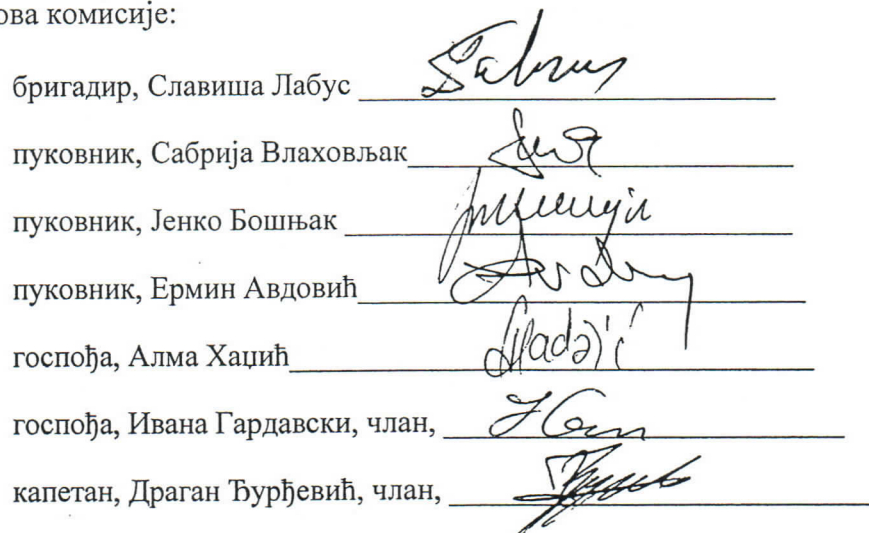 ова комисије:
бригадир, Славиша Лабус
пуковник, Сабрија Влаховљак
пуковник, Јенко Бошњак
пуковник, Ермин Авдовић
госпођа, Алма Хаџић
госпођа, Ивана Гардавски, члан,
капетан, Драган Ђурђевић, члан,